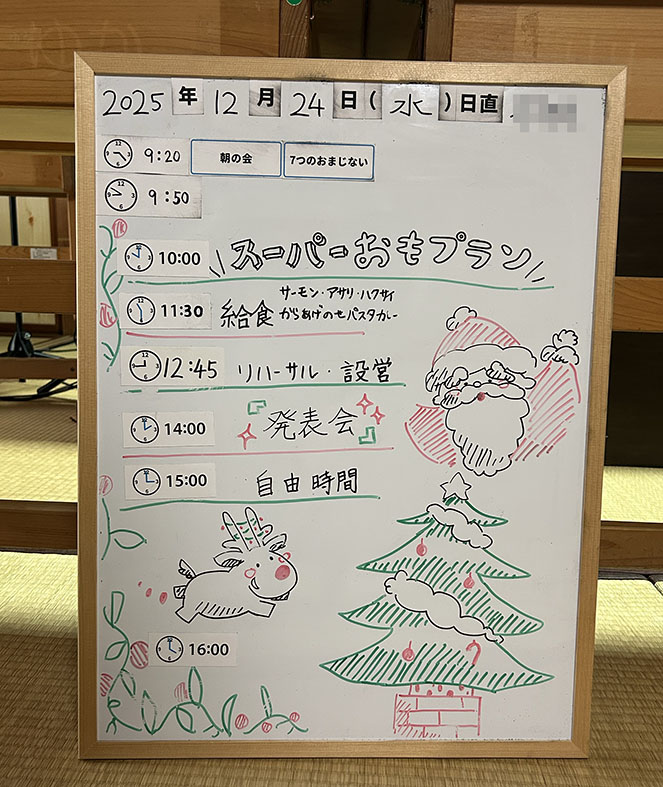 2025年12月24日(水)日直
9:20 朝の会 7つのおまじない
9:50
10:00 スーパーおもプラン
11:30 給食 サーモン・アサリ・ハクサイ
からあげのせパスタカレー
12:45 リハーサル・設営
14:00 発表会
15:00 自由時間
16:00